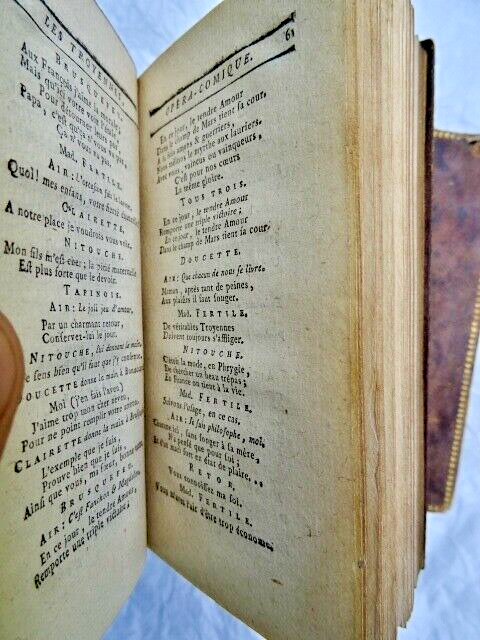 LES TROYENNES,
BRUSQUEFER.
Aux François j'aime la morale,
Mais qu'ils
Pour détourner le fatale
Papa, c'est qu'ils
Ça n' vous va pas,
Mad. FERTILE.
AIR:
Quoi! mes enfans, votre ame
CLAIRETTE.
A notre place je voudrois vous voir.
NITOUCHE.
Mon fils m'est cher; la pitié maternelle
Est plus forte que le devoir.
TAPINOIS.
AIR: Le joli jeu d'amour.
Par un charmant retour,
Conservez-lui le jour.
NITOUCHE, lui donnant la main.
Je sens bien qu'il faut que j'y
DOUCETTE donne la main à
Moi (j'en fais l'aveu)
J'aime trop mon cher neveu,
Pour ne point remplir votre
CLAIRETTE donne la main à
L'exemple que je suis,
Prouve bien que je suis,
Ainsi que vous, ma sœur,
BRUSQUEFER.
AIR: C'est Fanchon
En ce jour, le tendre Amour,
Remporte une triple victoire;
OPÉRA-COMIQUE. 61
En ce jour, le tendre Amour
Dans le champ de Mars tient sa cour,
A la fois amans & guerriers,
Nous mêlons le myrthe aux lauriers.
Avec vous, vaincus ou vainqueurs,
C'est pour nos cœurs
La même gloire.
TOUS TROIS.
En ce jour, le tendre Amour
Remporte une triple victoire;
En ce jour, le tendre Amour
Dans le champ de Mars tient sa cour.
DOUCETTE.
AIR: Que chacun de nous se livre.
Maman, après tant de peines,
Aux plaisirs il faut songer.
Mad. FERTILE.
De véritables Troyennes
Doivent toujours s'affliger.
NITOUCHE.
C'étoit la mode, en Phrygie,
De chercher un beau trépas;
En France on tient à la vie.
Mad. FERTILE.
Suivons l'usage, en ce cas.
AIR: Je suis philosophe, moi.
Chacune ici, sans songer à sa mère,
N'a pensé que pour soi;
Et d'un mari sort en état de plaire,..
RETOR.
Vous connoissez ma foi.
Mad. FERTILE.
Vous m'avez l'air d'être trop économe;